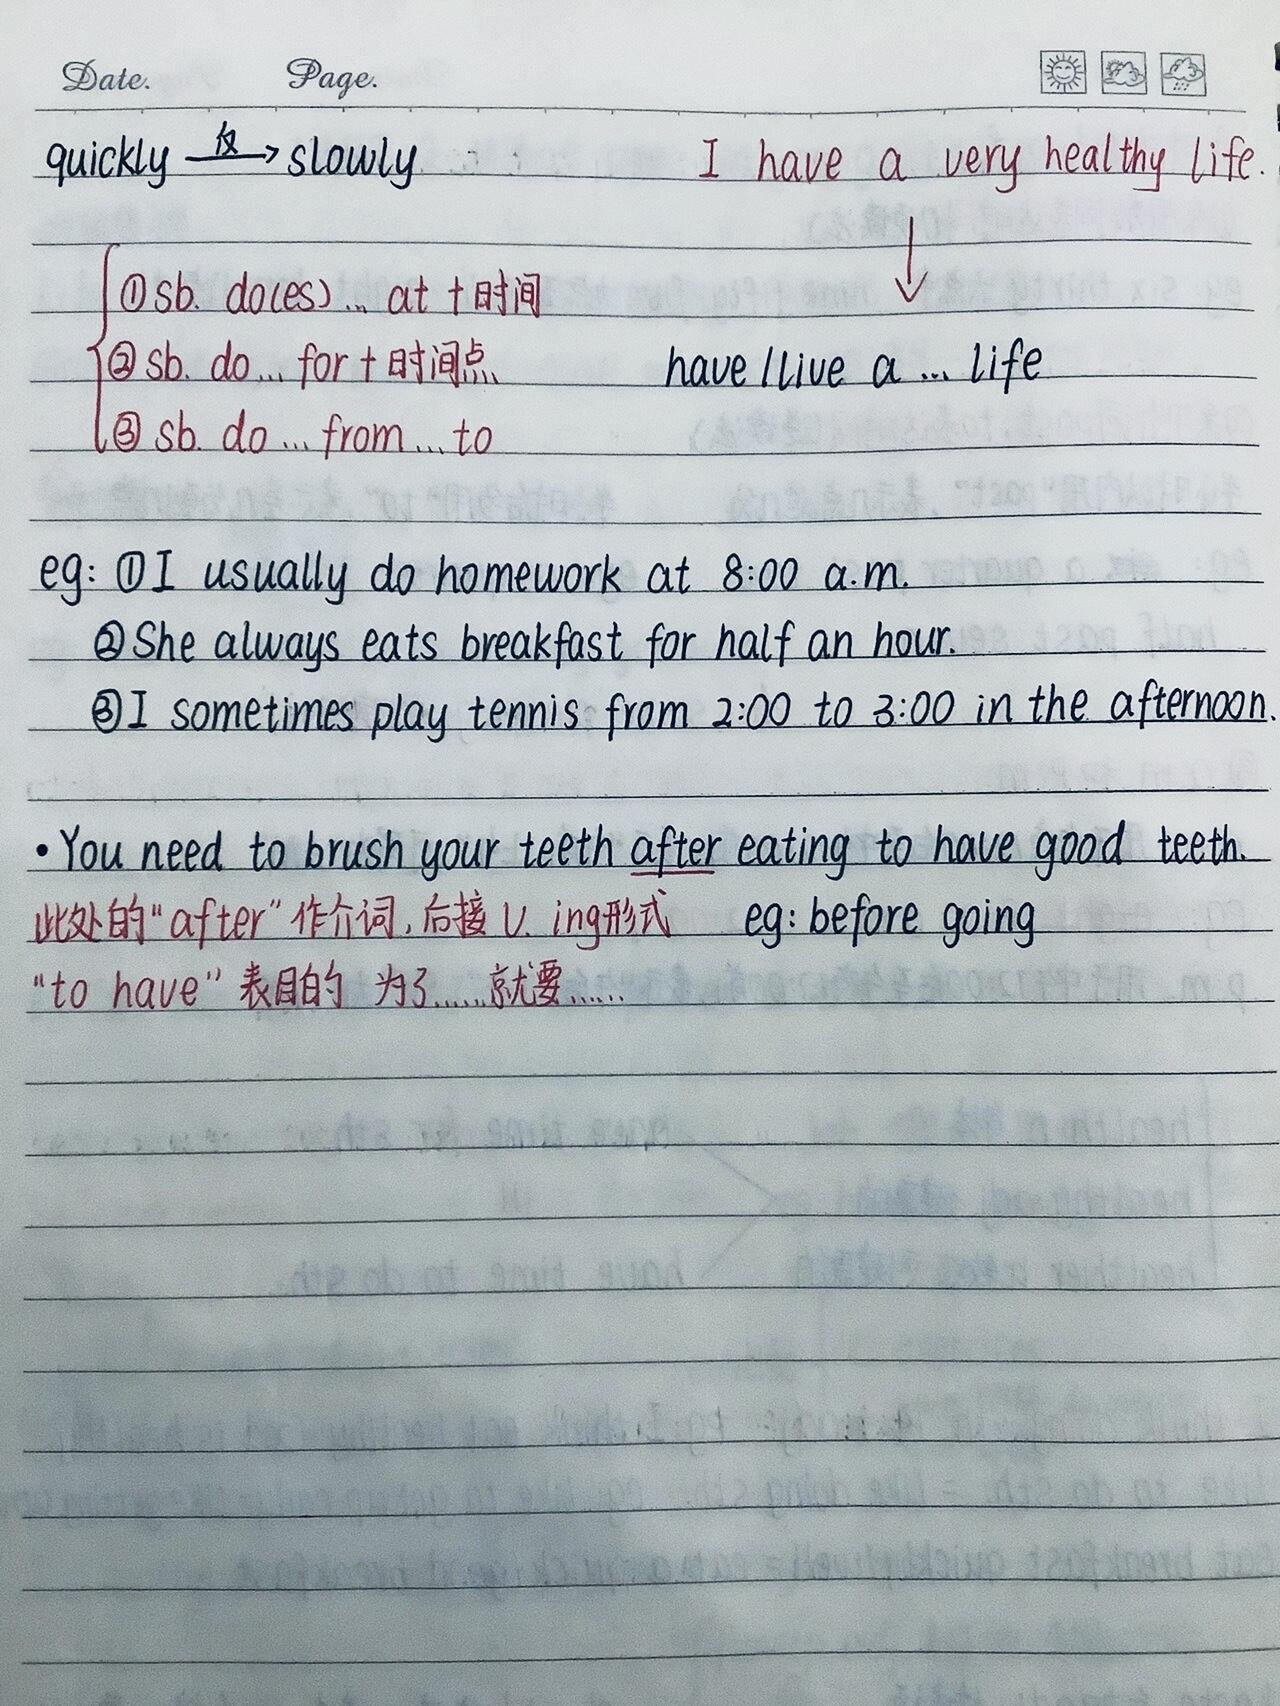 Date. Page.
quickly 反→ slowly I have a very healthy life.
↓
①sb. do(es)... at + 时间
②sb. do... for + 时间点 have/live a ... life
③sb. do ... from ... to
eg: ①I usually do homework at 8:00 a.m.
②She always eats breakfast for half an hour.
③I sometimes play tennis from 2:00 to 3:00 in the afternoon.
•You need to brush your teeth after eating to have good teeth.
此处的“after”作介词,后接 V. ing形式 eg: before going
“to have” 表目的 为了......就要......